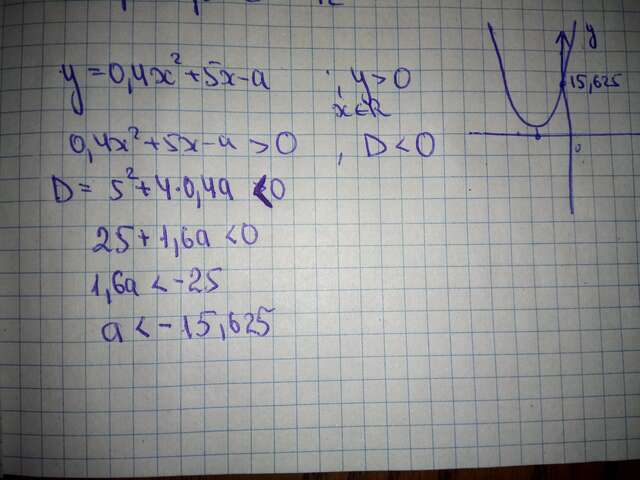 y = 0,4x² + 5x - a , y > 0
x∈R
0,4x² + 5x - a > 0 , D < 0
D = 5² + 4·0,4a < 0
25 + 1,6a < 0
1,6a < -25
a < -15,625
y
15,625
0